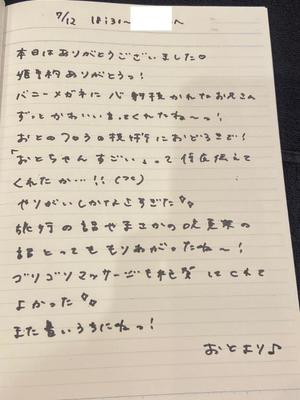 7/12 18:30~ へ
本日はありがとうございました♡
貢物ありがとうっ!
バニーメガネに心射抜かれたお兄さん
ずっとかわいい言ってくれたね~っ!
おとのプロの技 におどろきで!
「おとちゃんすごい」って 伝えて
くれたか…!!
やりがいしかなさすぎた
旅行の話やまさかの 吹奏楽の
話とってももりあがったね~!
ゴリゴリマッサージも絶賛してくれて
よかった
また暑いうちにねっ!
おとより♪